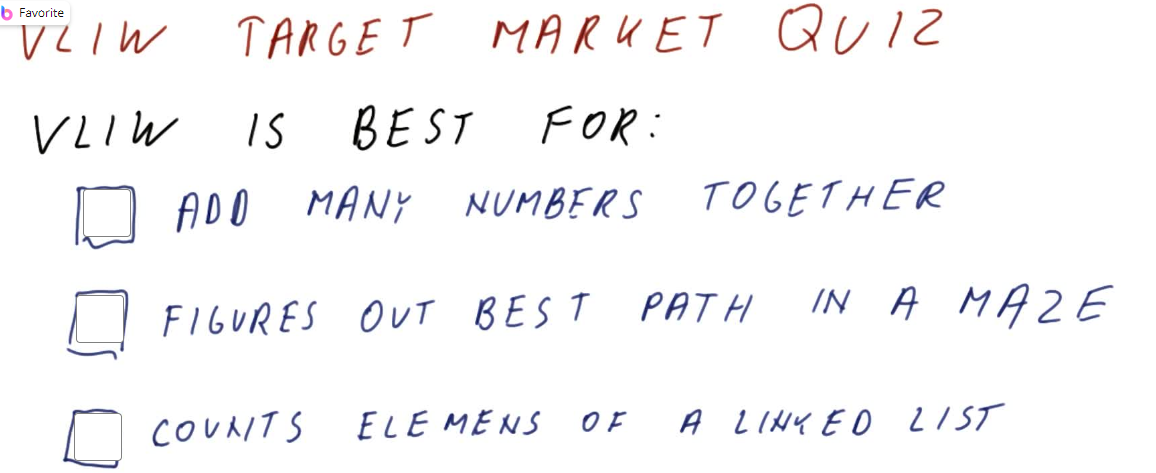 Favorite
VLIW TARGET MARKET QUIZ
VLIW IS BEST FOR:
ADD MANY NUMBERS TOGETHER
FIGURES OUT BEST PATH IN A MAZE
COUNTS ELEMENS OF A LINKED LIST